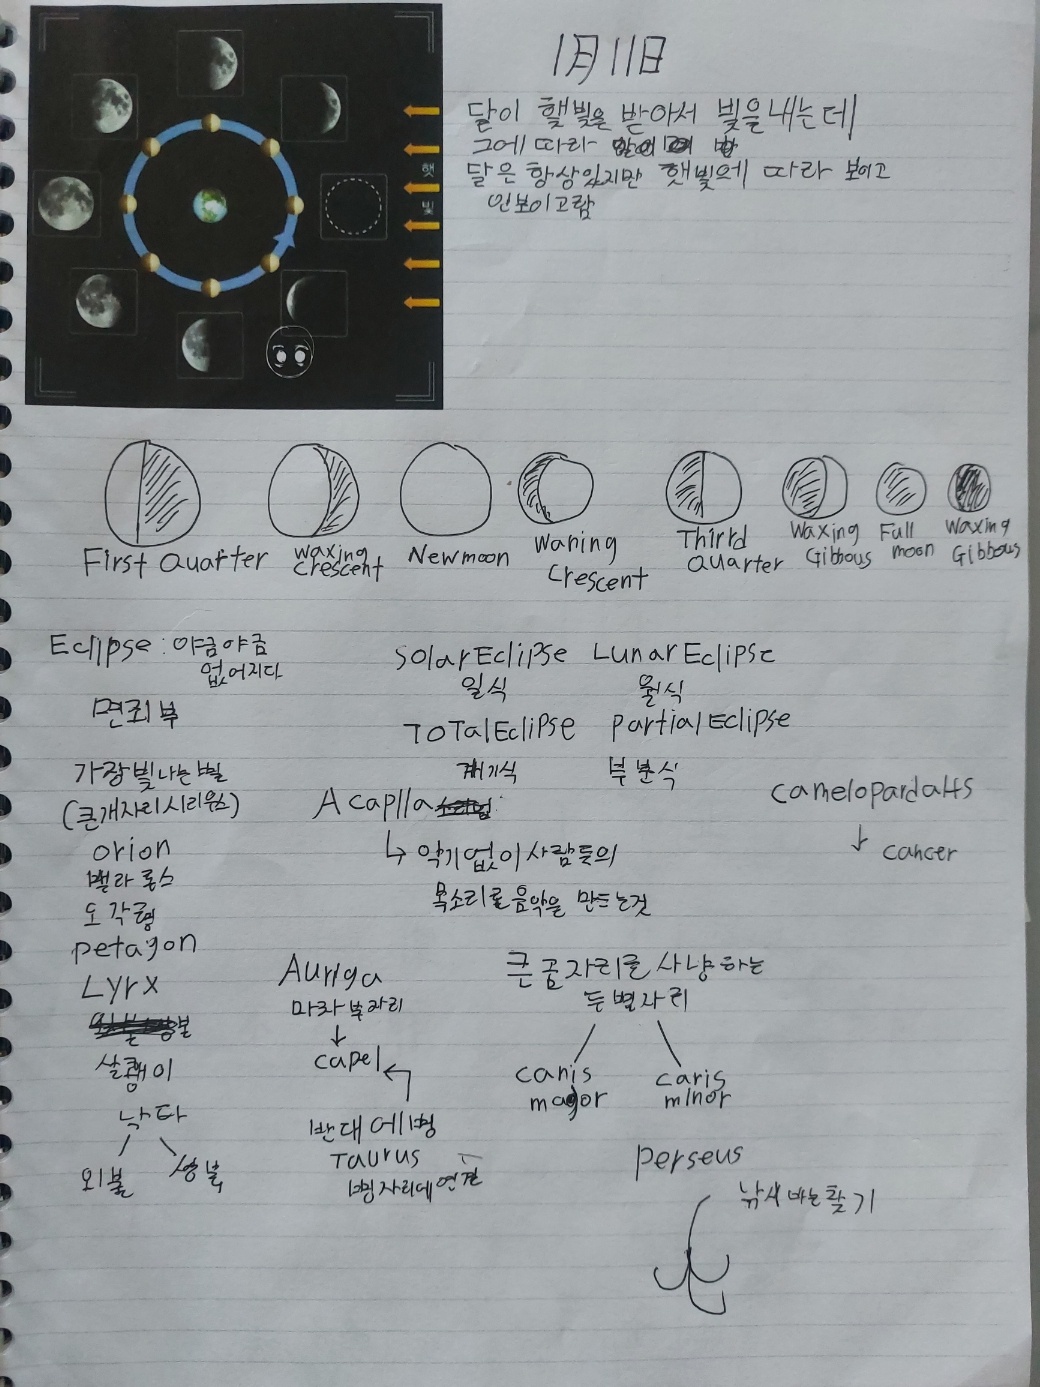 1月11日
달이 햇빛을 받아서 빛을 내는데
그에 따라
달은 항상있지만 햇빛에 따라 보이고
안보이고함
햇
빛
First Quarter
waxing crescent
New moon
Waning crescent
Thirrd Quarter
Waxing Gibbous
Full moon
Waxing Gibbous
Eclipse : 야금야금
없어지다
면죄부
가장 빛나는별
(큰개자리시리우스)
orion
벨라 톨스
오각형
petagon
Lyrx
살쾡이
낙타
외봉
쌍봉
Solar Eclipse
일식
Lunar Eclipse
월식
ToTal Eclipse
개기식
partial Eclipse
부분식
Acaplla
↳ 악기없이 사람들의
목소리로 음악을 만드는것
camelopardalts
↓
cancer
Auriga
마차부자리
↓
capel
반대에
Taurus
연결
큰곰자리를 사냥하는
두별자리
canis major
caris minor
perseus